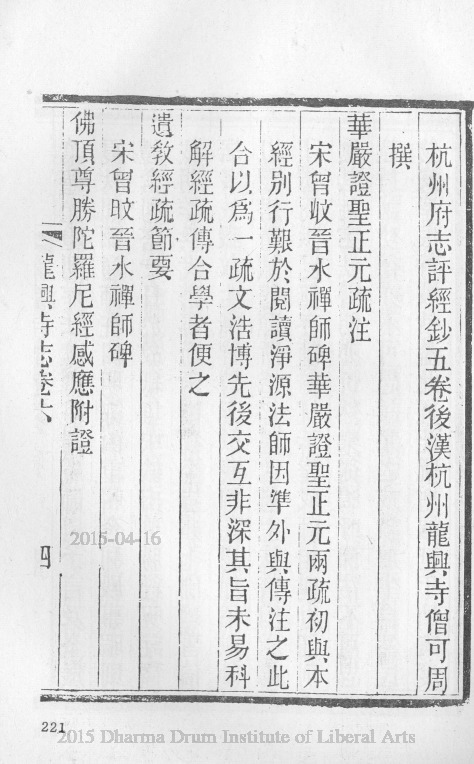 杭州府志評經鈔五卷後漢杭州龍興寺僧可周
撰
華嚴證聖正元疏注
宋曾旼晉水禪師碑華嚴證聖正元兩疏初與本
經別行艱於閱讀淨源法師因準外與傳注之此
合以爲一疏文浩博先後交互非深其旨未易科
解經疏傳合學者便之
遺敎經疏節要
宋曾旼晉水禪師碑
佛頂尊勝陀羅尼經感應附證
龍興寺志卷六
四
2015-04-16
221
2015 Dharma Drum Institute of Liberal Arts